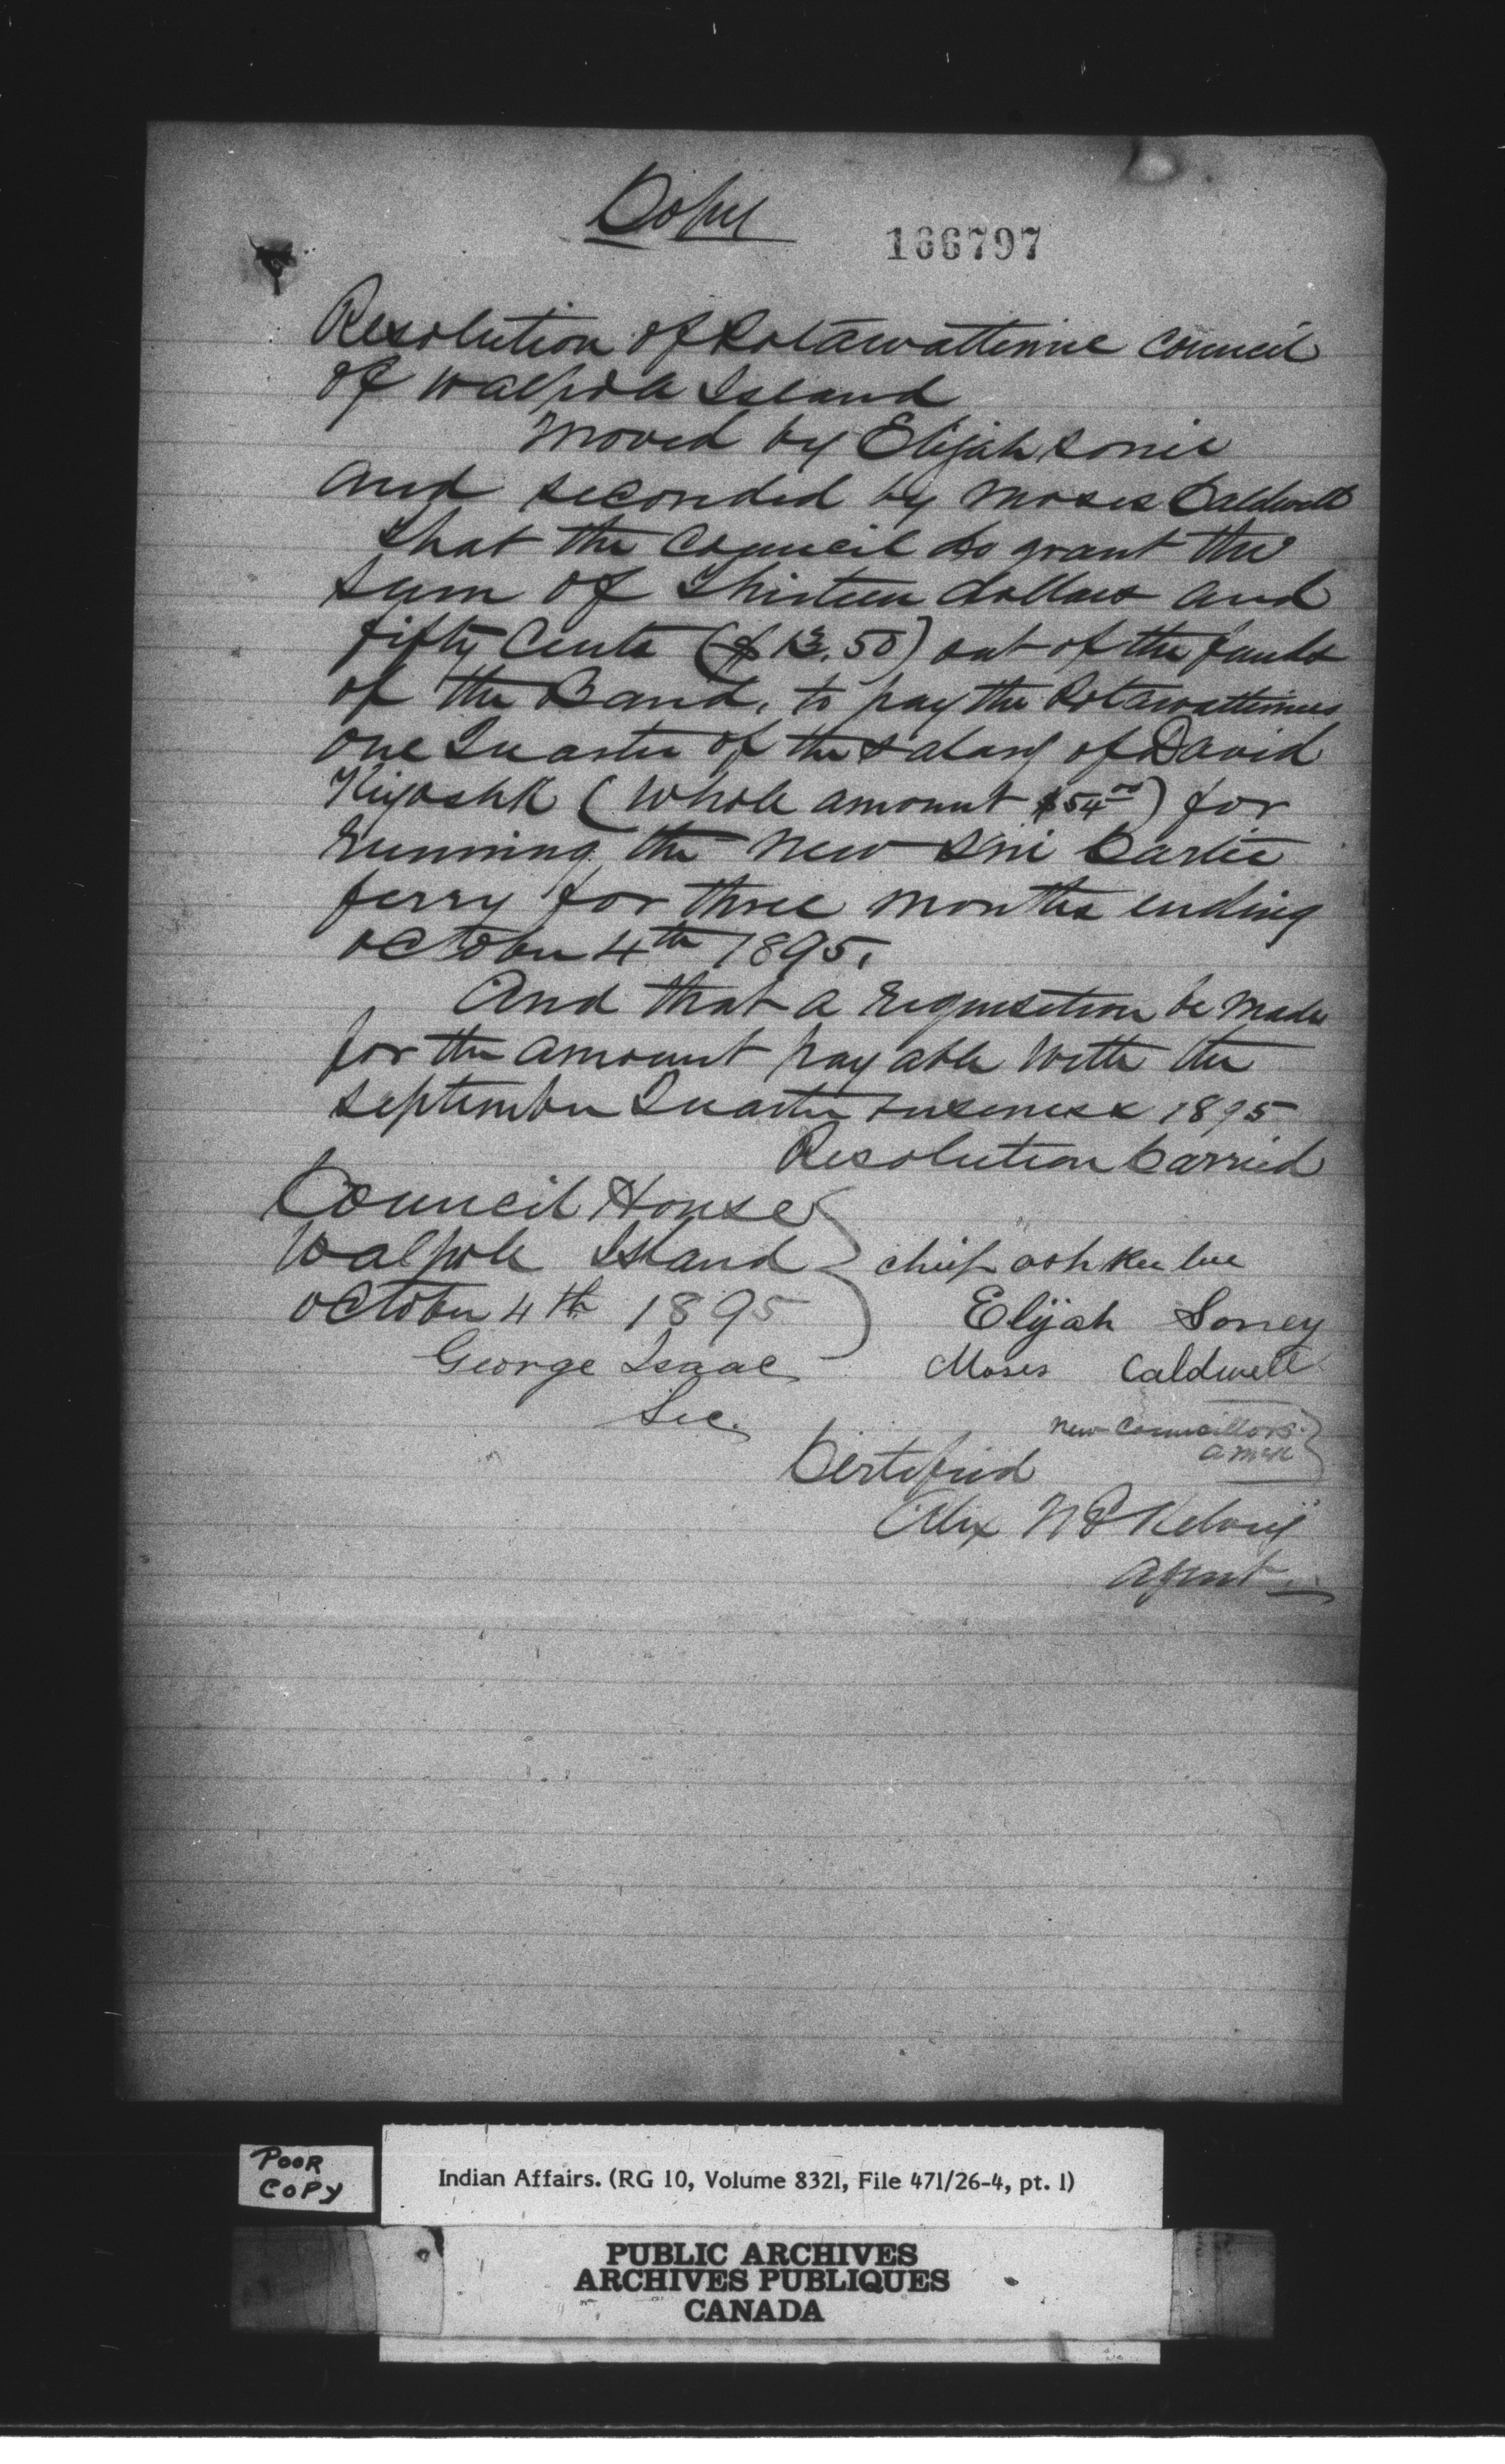 Copy
166797
Resolution of Potawattimie Council
of Walpole Island
Moved by Elijah Sonie
and seconded by Moses Caldwell
that the Council do grant the
sum of Thirteen dollars and
fifty Cents ($13.50) out of the funds
of the Band, to pay the Potawattimies
one Quarter of the Salary of David
Kiyoshk (whole amount $54.00) for
running the new Sni Cartie
ferry for three months ending
October 4th 1895.
And that a requisition be made
for the amount payable with the
September Quarter business 1895
Resolution Carried
Council House
Walpole Island
October 4th 1895
George Isaac
Sec.
chief ashkebee
Elijah Soney
Moses Caldwell
new Councillors
A McK
Certified
Alex McKelvey
Agent
POOR
COPY
Indian Affairs. (RG 10, Volume 8321, File 471/26-4, pt. 1)
PUBLIC ARCHIVES
ARCHIVES PUBLIQUES
CANADA